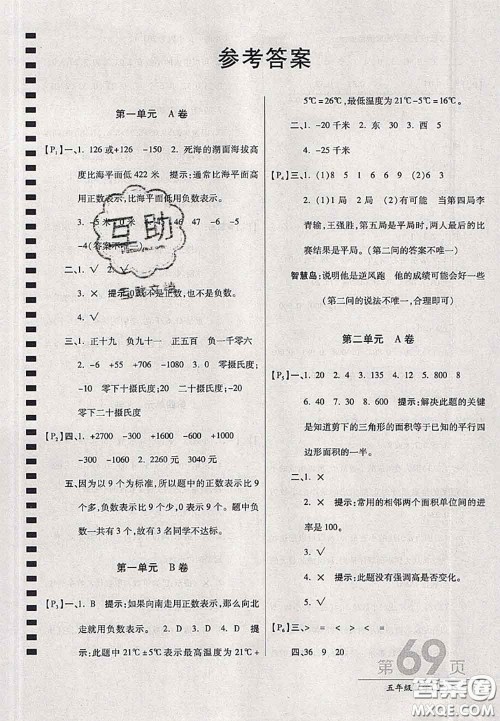 参考答案
第一单元 A卷
【P₁】一、1. 126或+126 -150 2. 死海的湖面海拔高
度比海平面低422米 提示:通常比海平面高
用正数表示,比海平面低用负数表示。
3. -5米 0米 46 47 -6
-4(答案不唯一)
二、1. × 2. ✓
3. × 提示:0既不是正数,也不是负数。
4. ✓
三、1. 正十九 负九十一 正五百 负一千零六
2. -6 +55 +78 -1088 3. 零摄氏度;
零下二十摄氏度;零上二十摄氏度;
零下二摄氏度
【P₂】四、1. +2700 -1000 -600 +1600
-300 -1060 2. 2260 3040
五、因为以9个为标准,所以题中的正数表示比9
个多,负数表示比9个少,0表示9个。题中负
数一共有3个,故有3名同学不达标。
第一单元 B卷
【P₃】一、1. B 提示:如果向南走用正数表示,那么向北
走就用负数表示。 2. D 3. D 4. D 提
示:此题中21℃±5℃表示最高温度为21℃+
5℃=26℃,最低温度为21℃-5℃=16℃。
二、1. -20千米 2. 东 30 3. 西 5
4. -25千米
【P₄】三、(1)1局 2局 (2)有可能 当第四局李
青输,王强胜,第五局是平局时,两人最后的比
赛结果是平局。(第二问的答案不唯一)
智慧岛:说明他是逆风跑 他的成绩可能会好一些
(第二问的说法不唯一,合理即可)
第二单元 A卷
【P₅】一、1. 20 2. 4 3. 135 4. 12 5. 0.6
6. 9 7. 40 8. 9 提示:解决此题的关键
是知道剪下的三角形的面积等于已知的平行四
边形面积的一半。
二、1. ✓
2. × 提示:常用的相邻两个面积单位间的进
率是100。
3. ✓
4. × 提示:此题没有强调高是否变化。
5. ✓
【P₆】三、> = < > < <
四、36 9 20
第69页
五年级
互助
答案圈
MXQE.COM